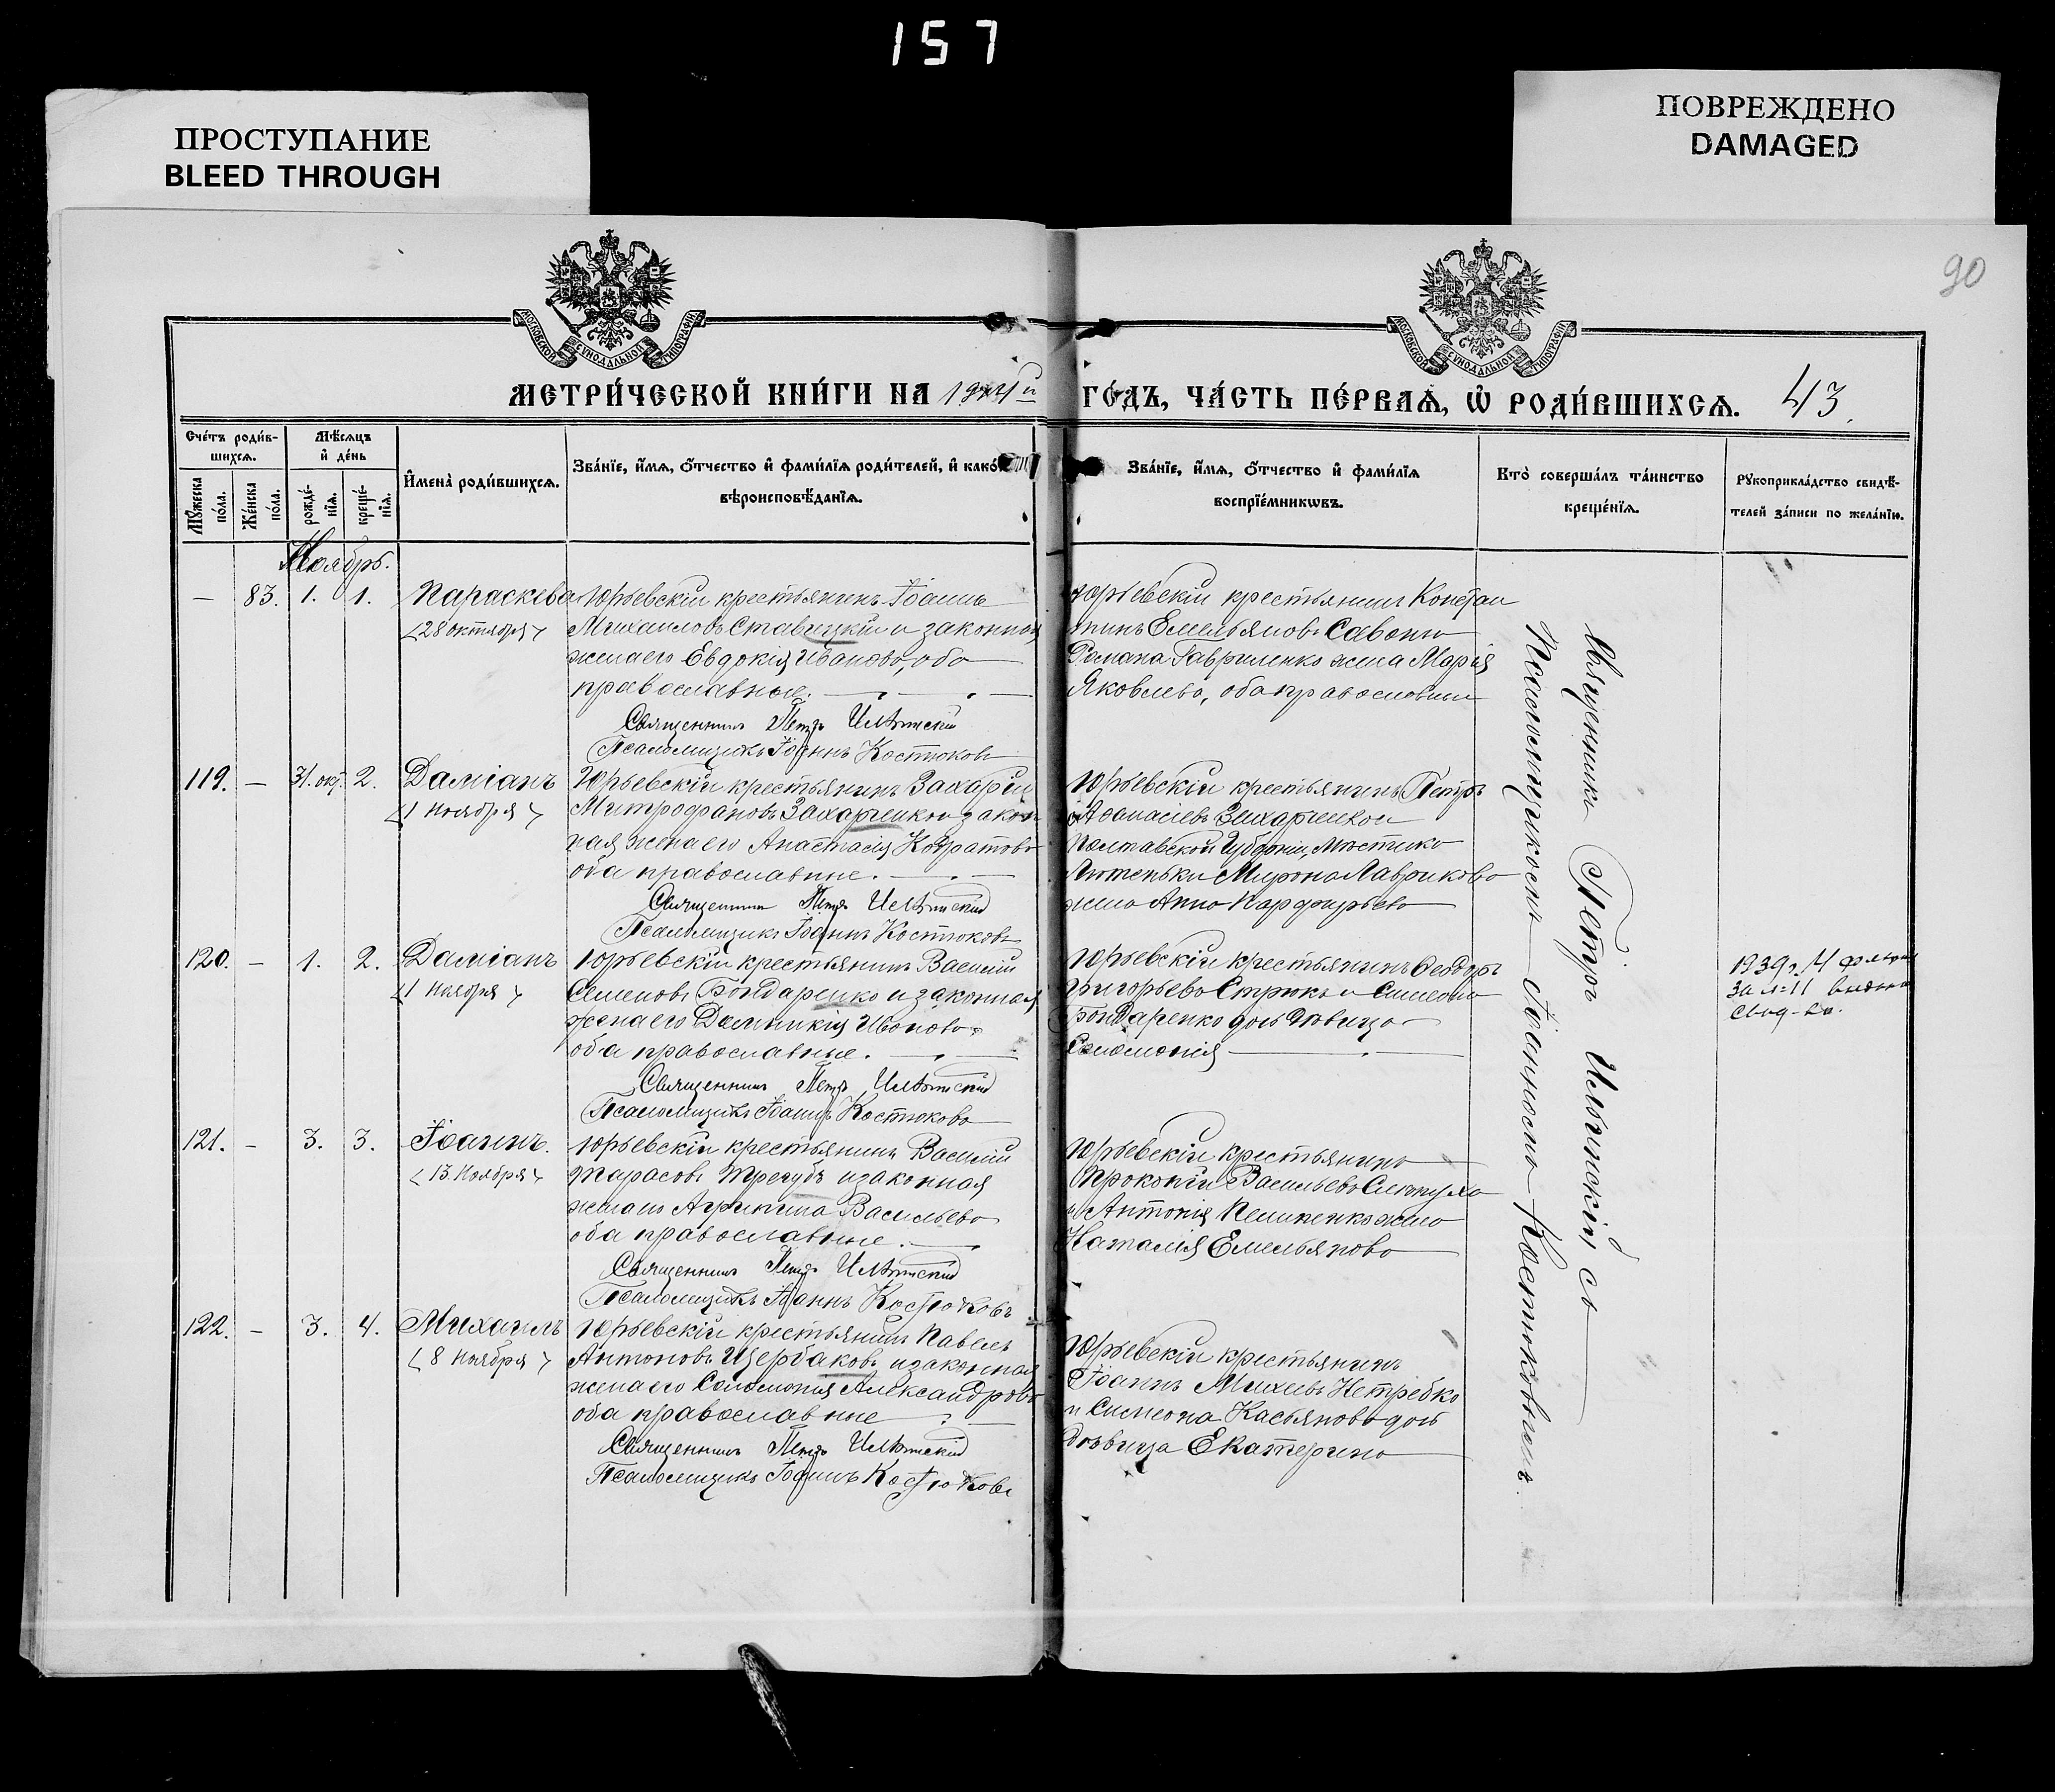 157
ПРОСТУПАНИЕ
BLEED THROUGH
ПОВРЕЖДЕНО
DAMAGED
90
МОСКОВСКОЙ СУНОДАЛЬНОЙ ТИПОГРАФІИ
МОСКОВСКОЙ СУНОДАЛЬНОЙ ТИПОГРАФІИ
МЕТРИ́ЧЕСКОЙ КНИ́ГИ НА
ГО́ДЪ, ЧА́СТЬ ПЕ́РВАѦ, Ѡ РОДИ́ВШИХСѦ. 43.
Сче́тъ роди́вшихсѧ.
Мѣ́сѧцъ и де́нь
Мꙋ́жеска по́ла.
Же́нска по́ла.
рожде́нїѧ.
креще́нїѧ.
И҆мена̀ роди́вшихсѧ.
Зва́нїе, и҆́мѧ, ѻ҆́тчество и҆ фами́лїѧ роди́телей, и҆ како́й
вѣроисповѣ́данїѧ.
Зва́нїе, и҆́мѧ, ѻ҆́тчество и҆ фами́лїѧ
воспрїе́мникѡвъ.
Кто̀ соверша́лъ та́инство
креще́нїѧ.
Рꙋкоприкла́дство свидѣ́-
телей за́писи по жела́нїю.
Ноябрь.
— 83. 1. 1. Параскева
<28 октября>
Юрьевскій крестьянинъ Іоаннъ
Михаиловъ Ставицкій и законная
жена его Евдокія Иванова, оба
православные.
Священникъ Петръ Ильинскій
Псаломщикъ Іоаннъ Костюковъ
Юрьевскій крестьянинъ Констан
тинъ Емельяновъ Савонь
Романа Гавриленко жена Марія
Яковлева, оба православные
119. — 31 окт. 2. Даміанъ
<1 Ноября>
Юрьевскій крестьянинъ Захарій
Митрофановъ Захарченко и закон
ная жена его Анастасія
оба православные.
Священникъ Петръ Ильинскій
Псаломщикъ Іоаннъ Костюковъ
Юрьевскій крестьянинъ Петръ
Аѳанасіевъ Захарченко и
Полтавской Губерніи, мѣстечка
Лютеньки Мирона Лаврикова
жена Анна Парфирьева
120. — 1. 2. Даміанъ
<1 Ноября>
Юрьевскій крестьянинъ Василій
Семеновъ Бондаренко и законная
жена его Домникія Иванова
оба православные.
Священникъ Петръ Ильинскій
Псаломщикъ Іоаннъ Костюковъ
Юрьевскій крестьянинъ Ѳеодоръ
Григорьевъ Стрюкъ и Симеона
Бондаренко дочь дѣвица
Соломонія
1939г. 14
за №11 выдано
свид-во.
121. — 3. 3. Іоаннъ.
<13 Ноября>
Юрьевскій крестьянинъ Василій
Тарасовъ Трегубъ и законная
жена его Агрипина Васильева
оба православные.
Священникъ Петръ Ильинскій
Псаломщикъ Іоаннъ Костюковъ
Юрьевскій крестьянинъ
Прокопій Васильевъ
и Антонія Пелипенко жена
Наталія Емельянова
122. — 3. 4. Михаилъ
<8 Ноября>
Юрьевскій крестьянинъ Павелъ
Антоновъ Щербаковъ и законная
жена его Соломонія Александрова
оба православные
Священникъ Петръ Ильинскій
Псаломщикъ Іоаннъ Костюковъ
Юрьевскій крестьянинъ
Іоаннъ Михеевъ Нетребко
и Симеона Касьянова дочь
дѣвица Екатерина
Священникъ Петръ Ильинскій, съ
Псаломщикомъ Іоанномъ Костюковымъ.